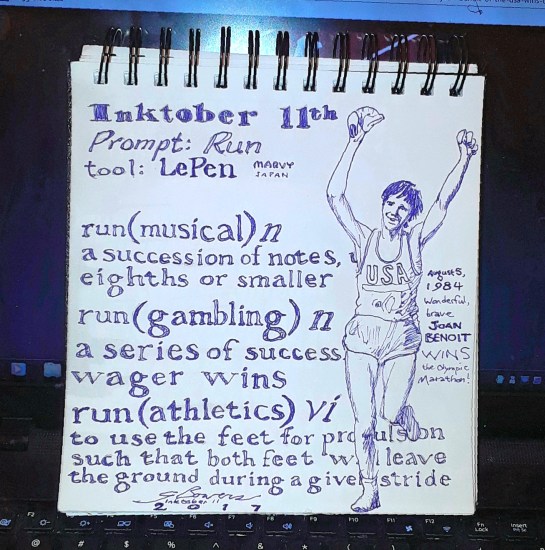 Inktober 11th
Prompt: Run
tool: LePen MARVY JAPAN
run(musical) n
a succession of notes,
eighths or smaller
run(gambling) n
a series of success
wager wins
run(athletics) vi
to use the feet for propulsion
such that both feet w ll leave
the ground during a given stride
inktober 11
2017
USA
August 5,
1984
Wonderful,
brave
JOAN
BENOIT
WINS
the Olympic
Marathon!
F2
F5
F6
F7
F8
F9
F10
F11
F12
Fn
Lock
Insert
@
#
$
%
^
&